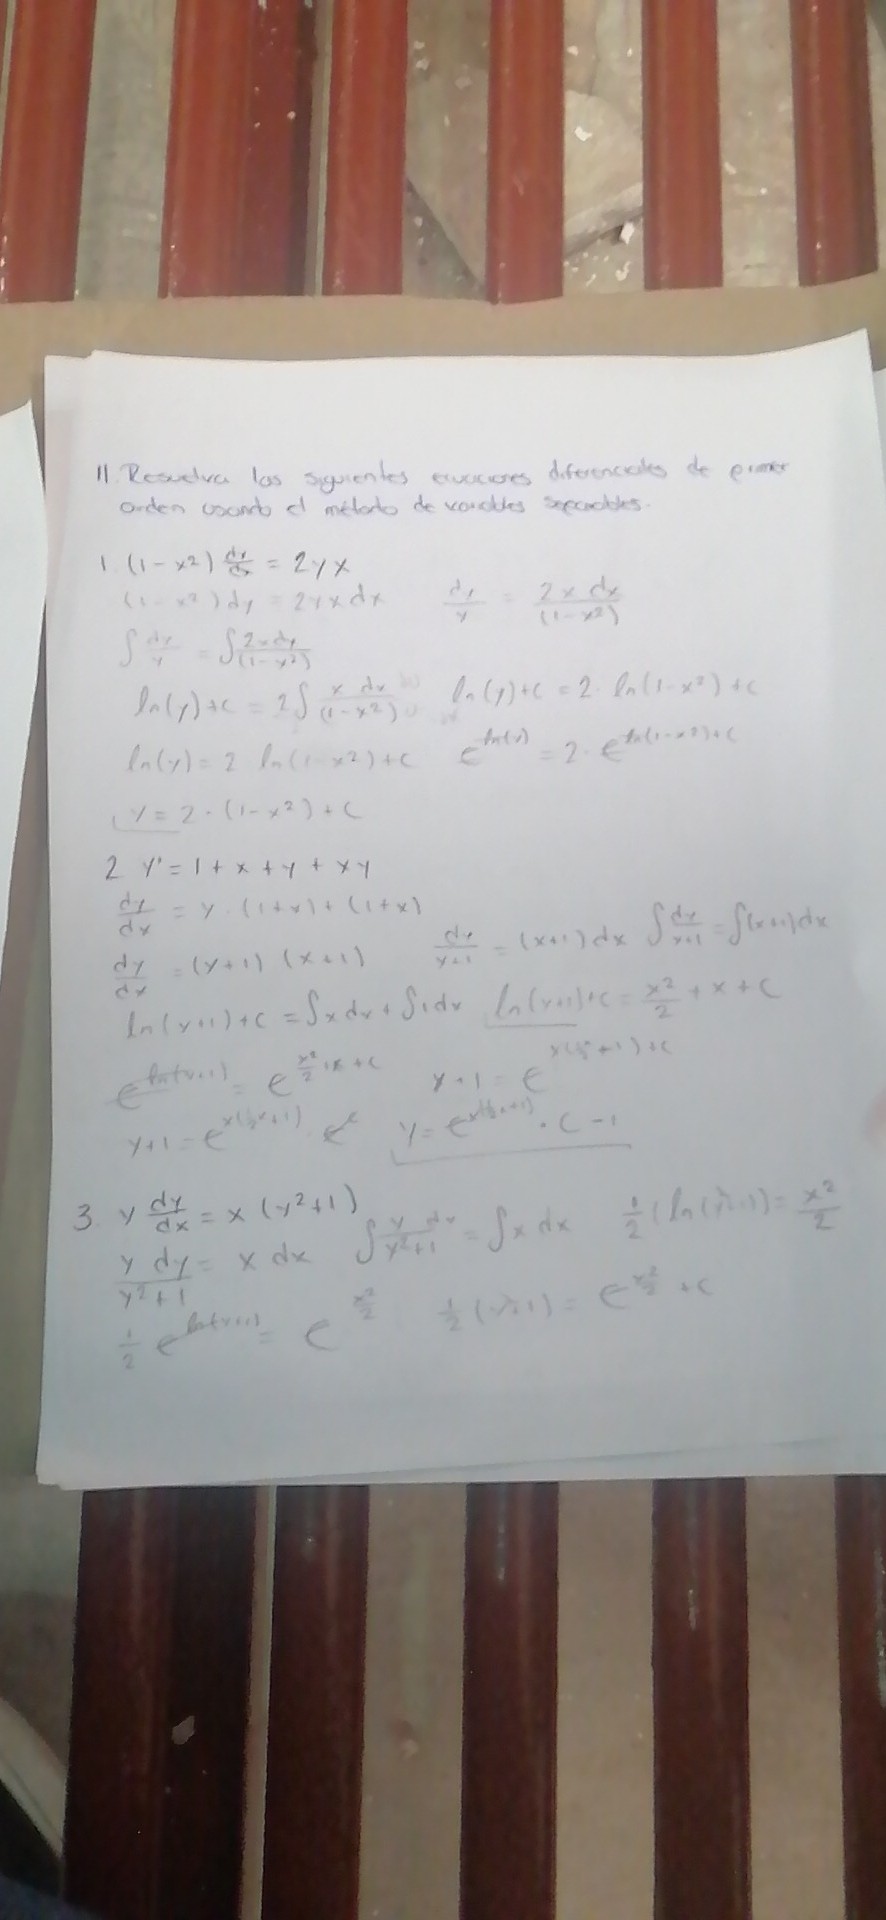 II. Resuelva las siguientes ecuaciones diferenciales de primer
orden usando el método de variables separables.
1. (1-x²) dy/dx = 2yx
(1-x²)dy = 2yxdx    dy/y = 2x dx/(1-x²)
∫ dy/y = ∫ 2xdy/(1-x²)
ln(y)+c = 2∫ x dx/(1-x²)    ln(y)+c = 2· ln(1-x²)+c
ln(y) = 2 ln(1-x²)+c    e^ln(y) = 2· e^ln(1-x²)+c
y = 2·(1-x²)+c
2 y' = 1+x+y+xy
dy/dx = y·(1+x)+(1+x)
dy/dx = (y+1)(x+1)    dy/y+1 = (x+1)dx    ∫ dy/y+1 = ∫(x+1)dx
ln(y+1)+c = ∫xdx+∫1dx    ln(y+1)+c = x²/2+x+c
e^ln(y+1) = e^x²/2+x+c    y+1 = e^x(½x+1)+c
y+1 = e^x(½x+1) · e^c    y = e^x(½x+1) · c-1
3. y dy/dx = x(y²+1)
y dy/y²+1 = x dx    ∫ y dy/y²+1 = ∫x dx    ½(ln(y²+1) = x²/2
½ e^ln(y²+1) = e^x²/2    ½(y²+1) = e^x²/2 +c